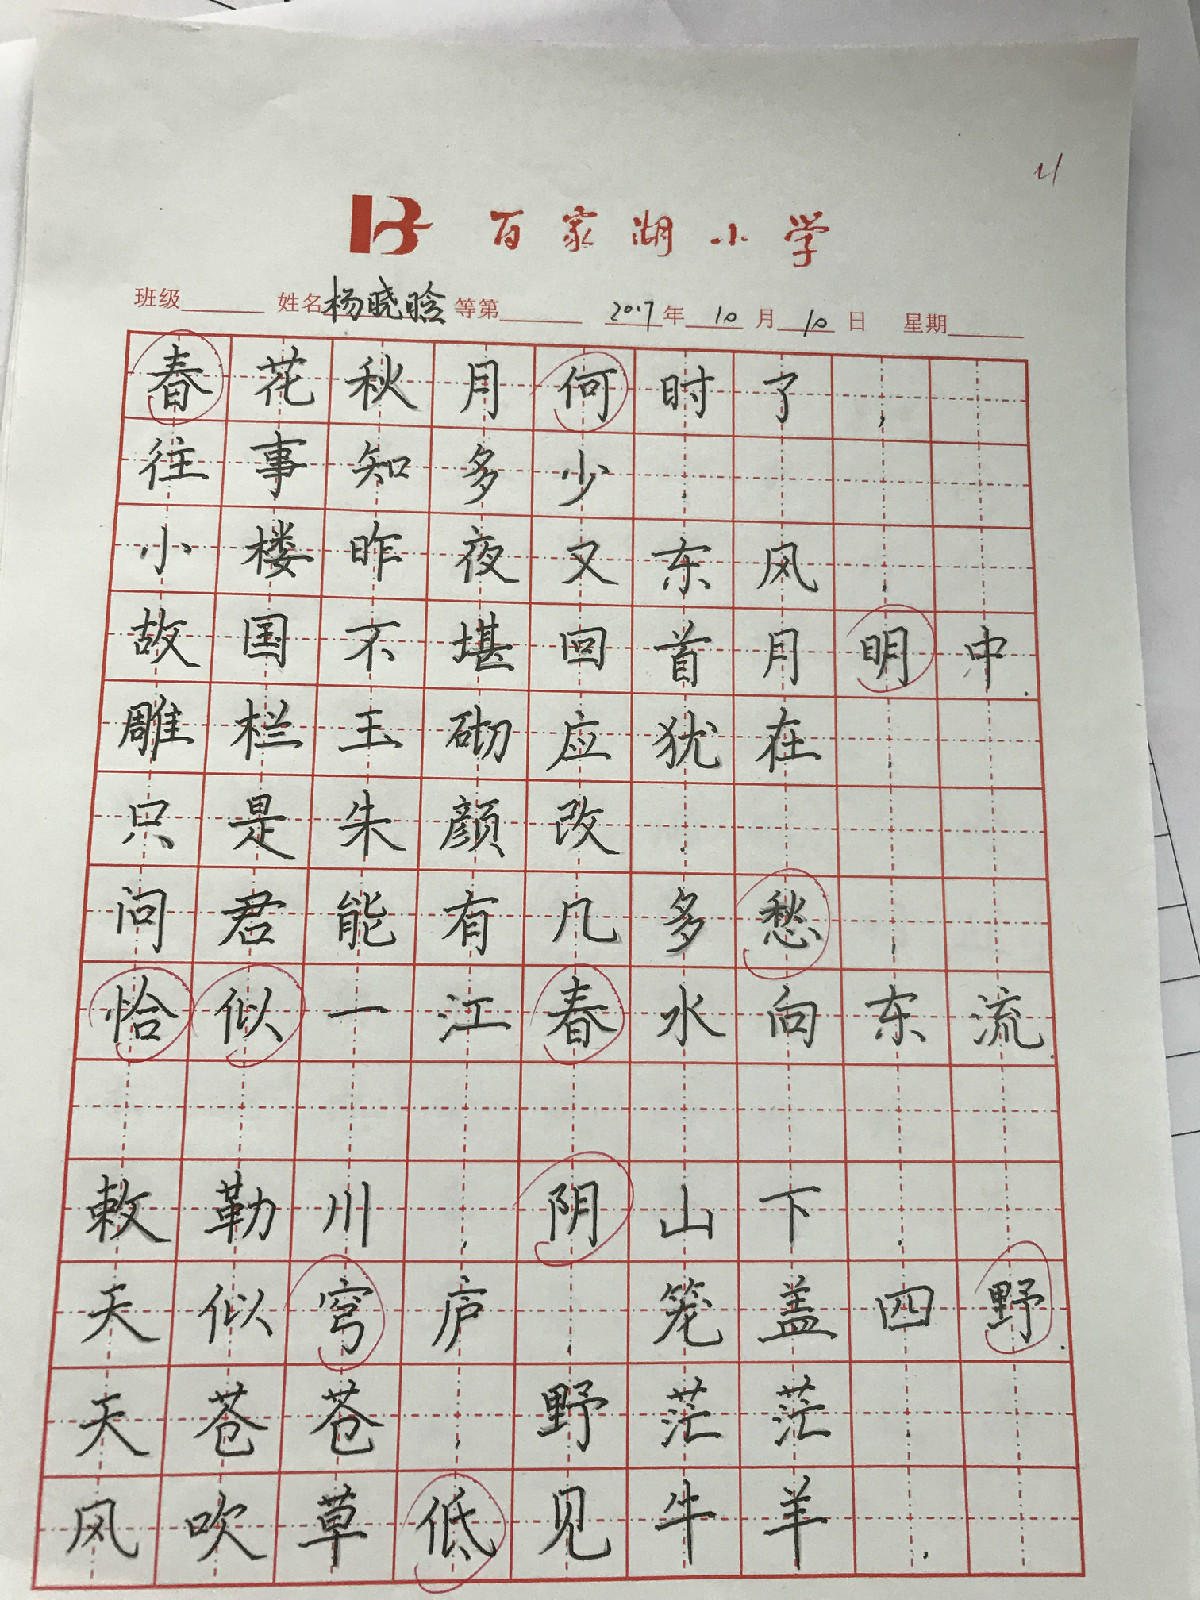 21
百家湖小学
班级 姓名 杨晓晗 等第 2017年 10月 10日 星期
春花秋月何时了,
往事知多少.
小楼昨夜又东风,
故国不堪回首月明中.
雕栏玉砌应犹在,
只是朱颜改.
问君能有几多愁,
恰似一江春水向东流.
敕勒川,阴山下.
天似穹庐,笼盖四野.
天苍苍,野茫茫.
风吹草低见牛羊.